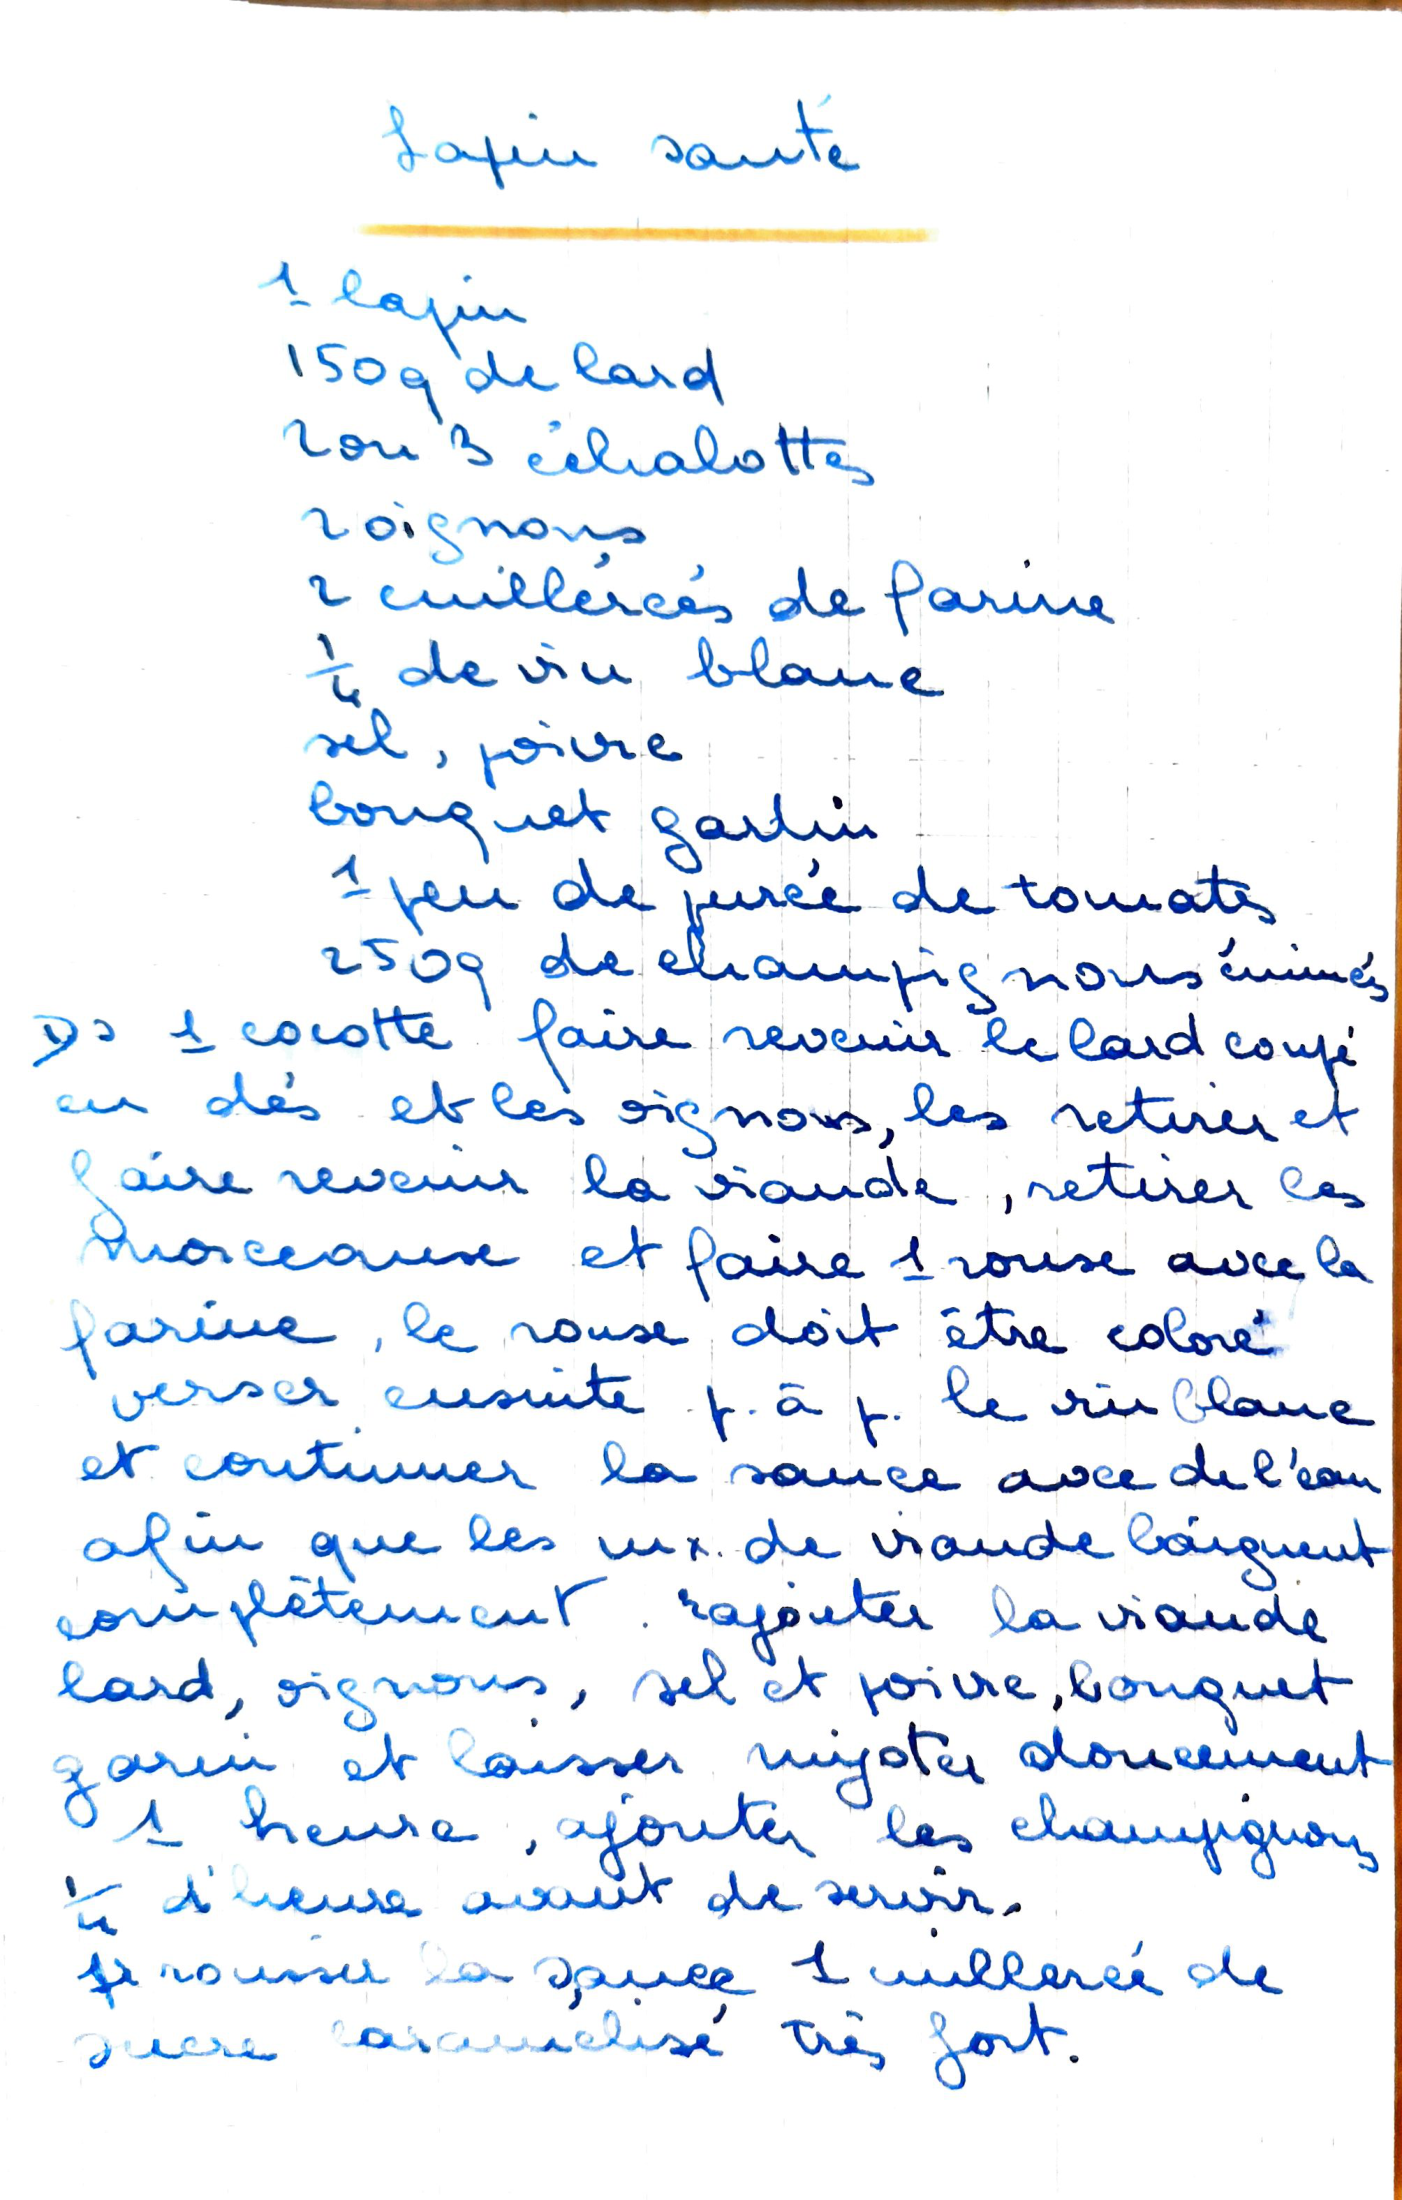 Lapin sauté
1 lapin
150g de lard
2 ou 3 échalottes
2 oignons
2 cuillérées de farine
1/4 de vin blanc
sel, poivre
bouquet garni
1 peu de purée de tomates
250g de champignons émincés
Ds 1 cocotte faire revenir le lard coupé
en dés et les oignons, les retirer et
faire revenir la viande, retirer les
morceaux et faire 1 roux avec la
farine, le roux doit être coloré
verser ensuite p. à p. le vin blanc
et continuer la sauce avec de l'eau
afin que les mx. de viande baignent
complètement. rajouter la viande
lard, oignons, sel et poivre, bouquet
garni et laisser mijoter doucement
1 heure, ajouter les champignons
1/4 d'heure avant de servir.
pr roussir la sauce 1 cuillerée de
sucre caramélisé très fort.